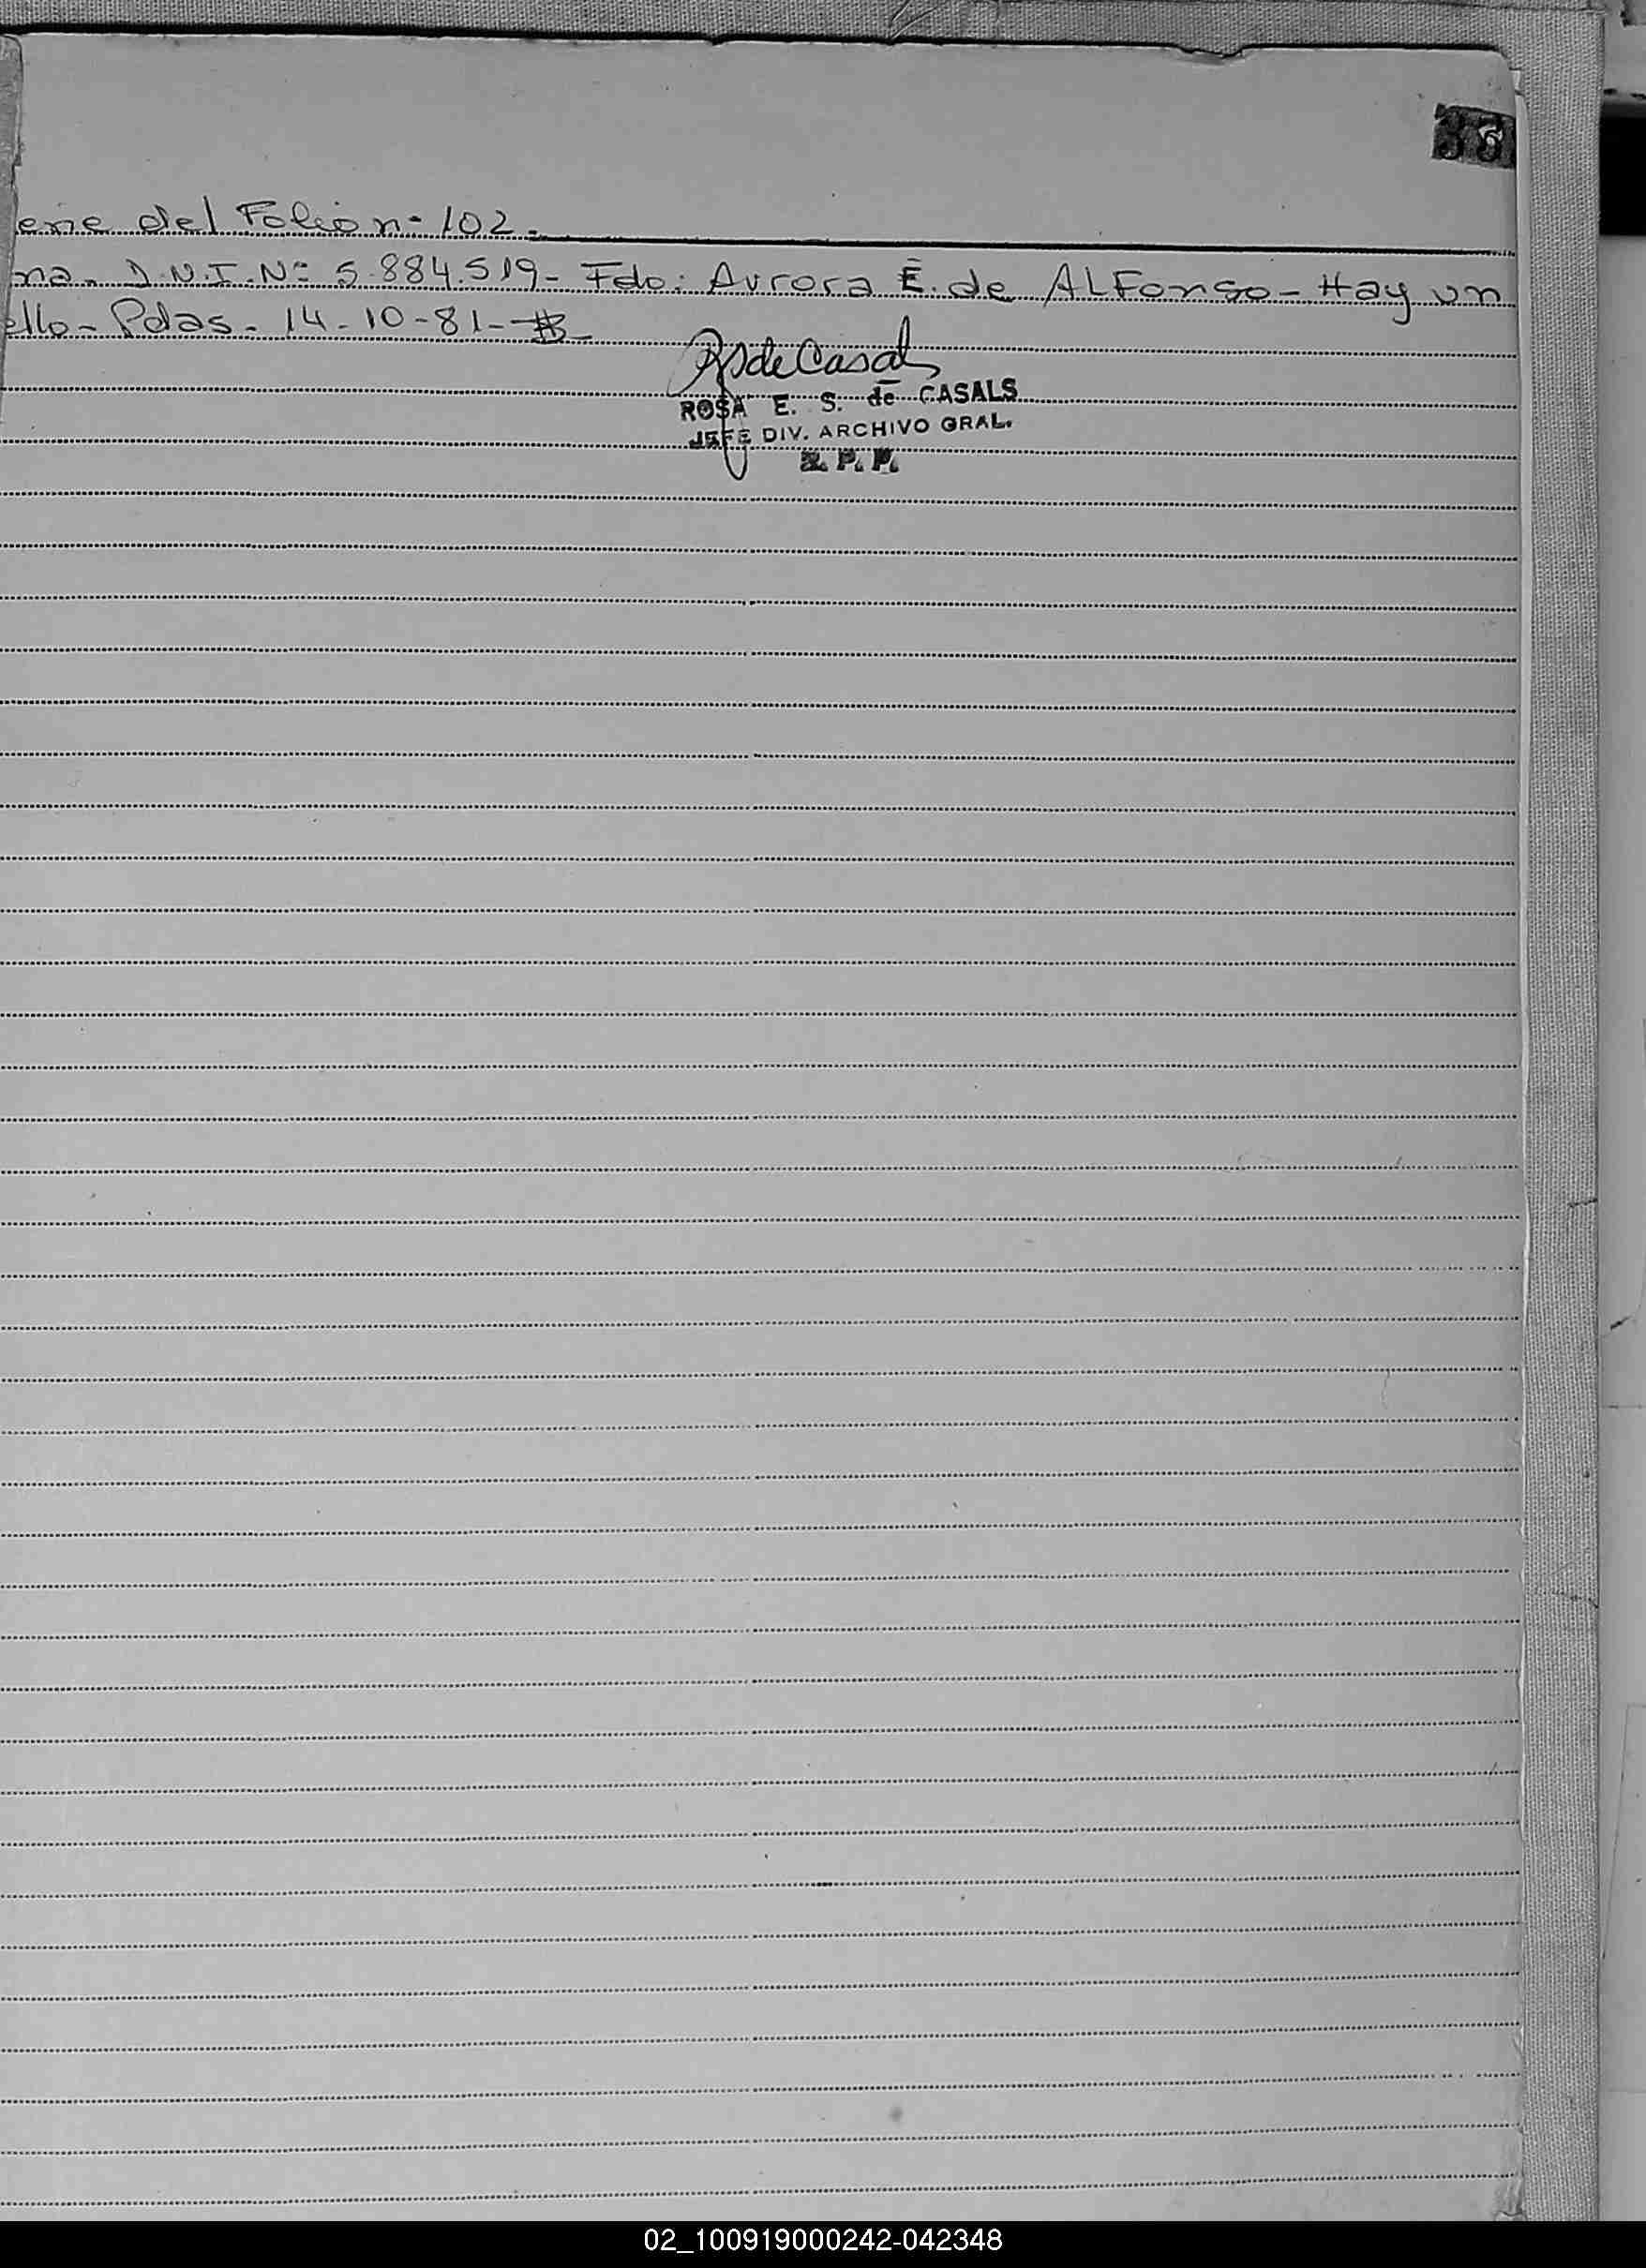 ene del Folio n= 102.-
na. D.N.I. Nº 5.884.519- Fdo: Aurora E. de ALFonso- Hay un
ello- Pdas- 14-10-81-
RSdeCasals
ROSA E. S. de CASALS
JEFE DIV. ARCHIVO GRAL.
02_100919000242-042348